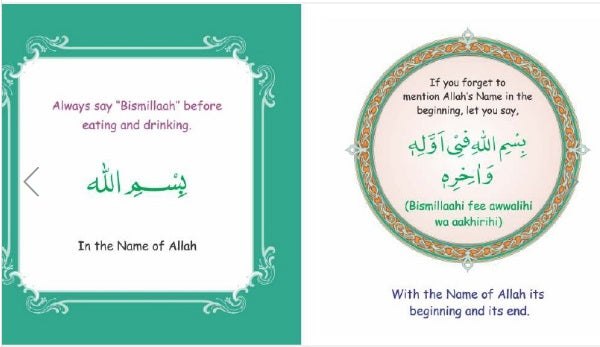 Always say "Bismillaah" before
eating and drinking.
بِسْمِ اللّٰه
In the Name of Allah
If you forget to
mention Allah's Name in the
beginning, let you say,
بِسْمِ اللّٰهِ فِيْٓ اَوَّلِهٖ
وَاٰخِرِهٖ
(Bismillaahi fee awwalihi
wa aakhirihi)
With the Name of Allah its
beginning and its end.